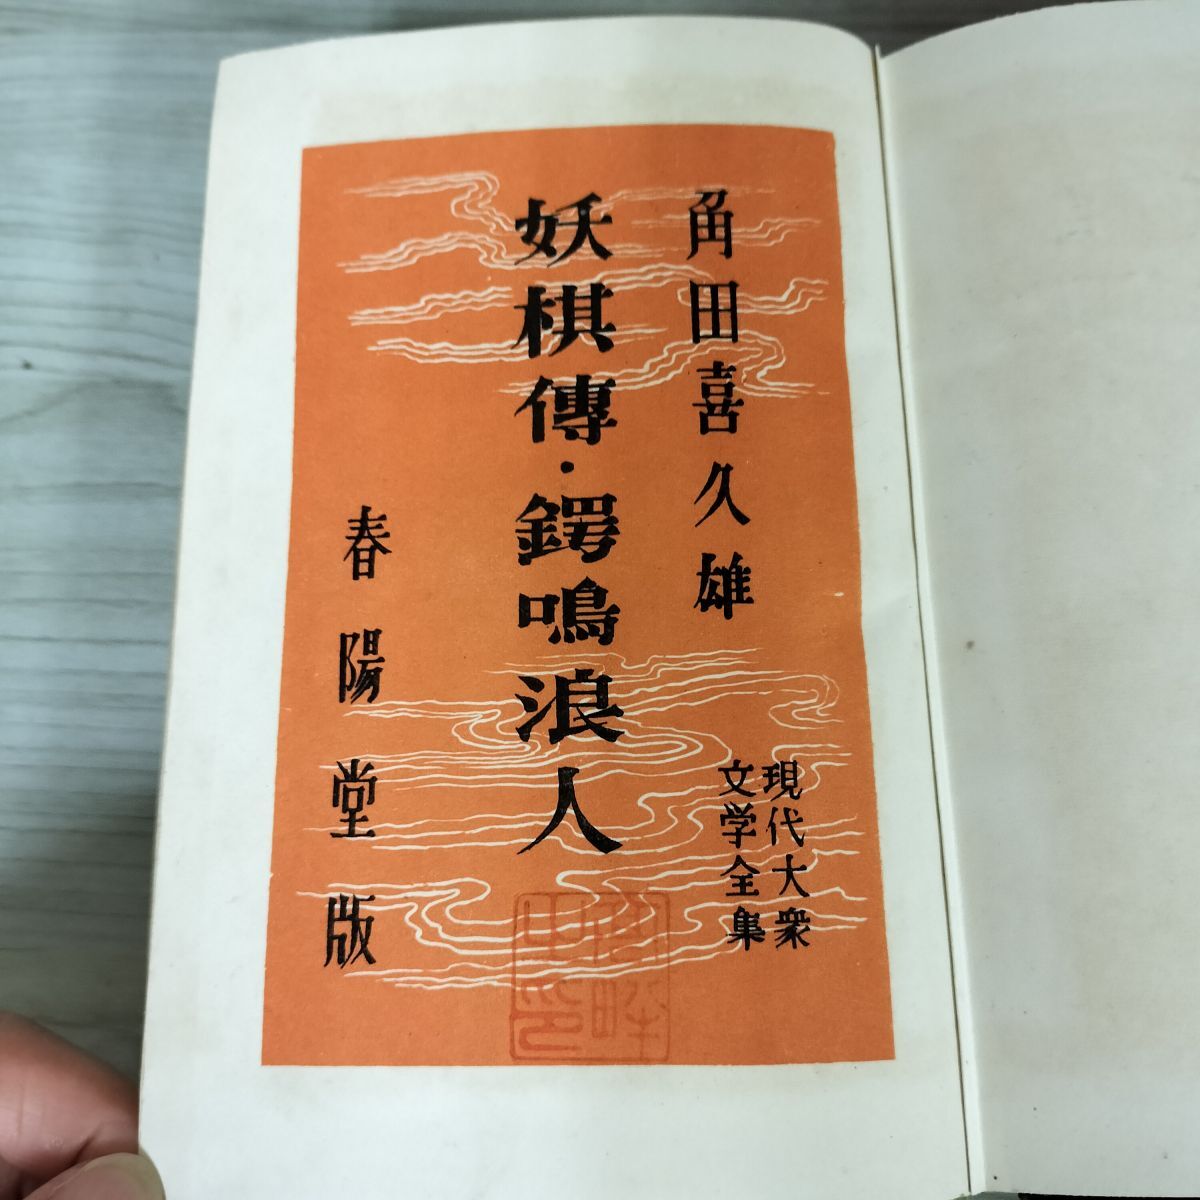 角田喜久雄
現代大衆
文学全集
妖棋傳・鍔鳴浪人
春陽堂版